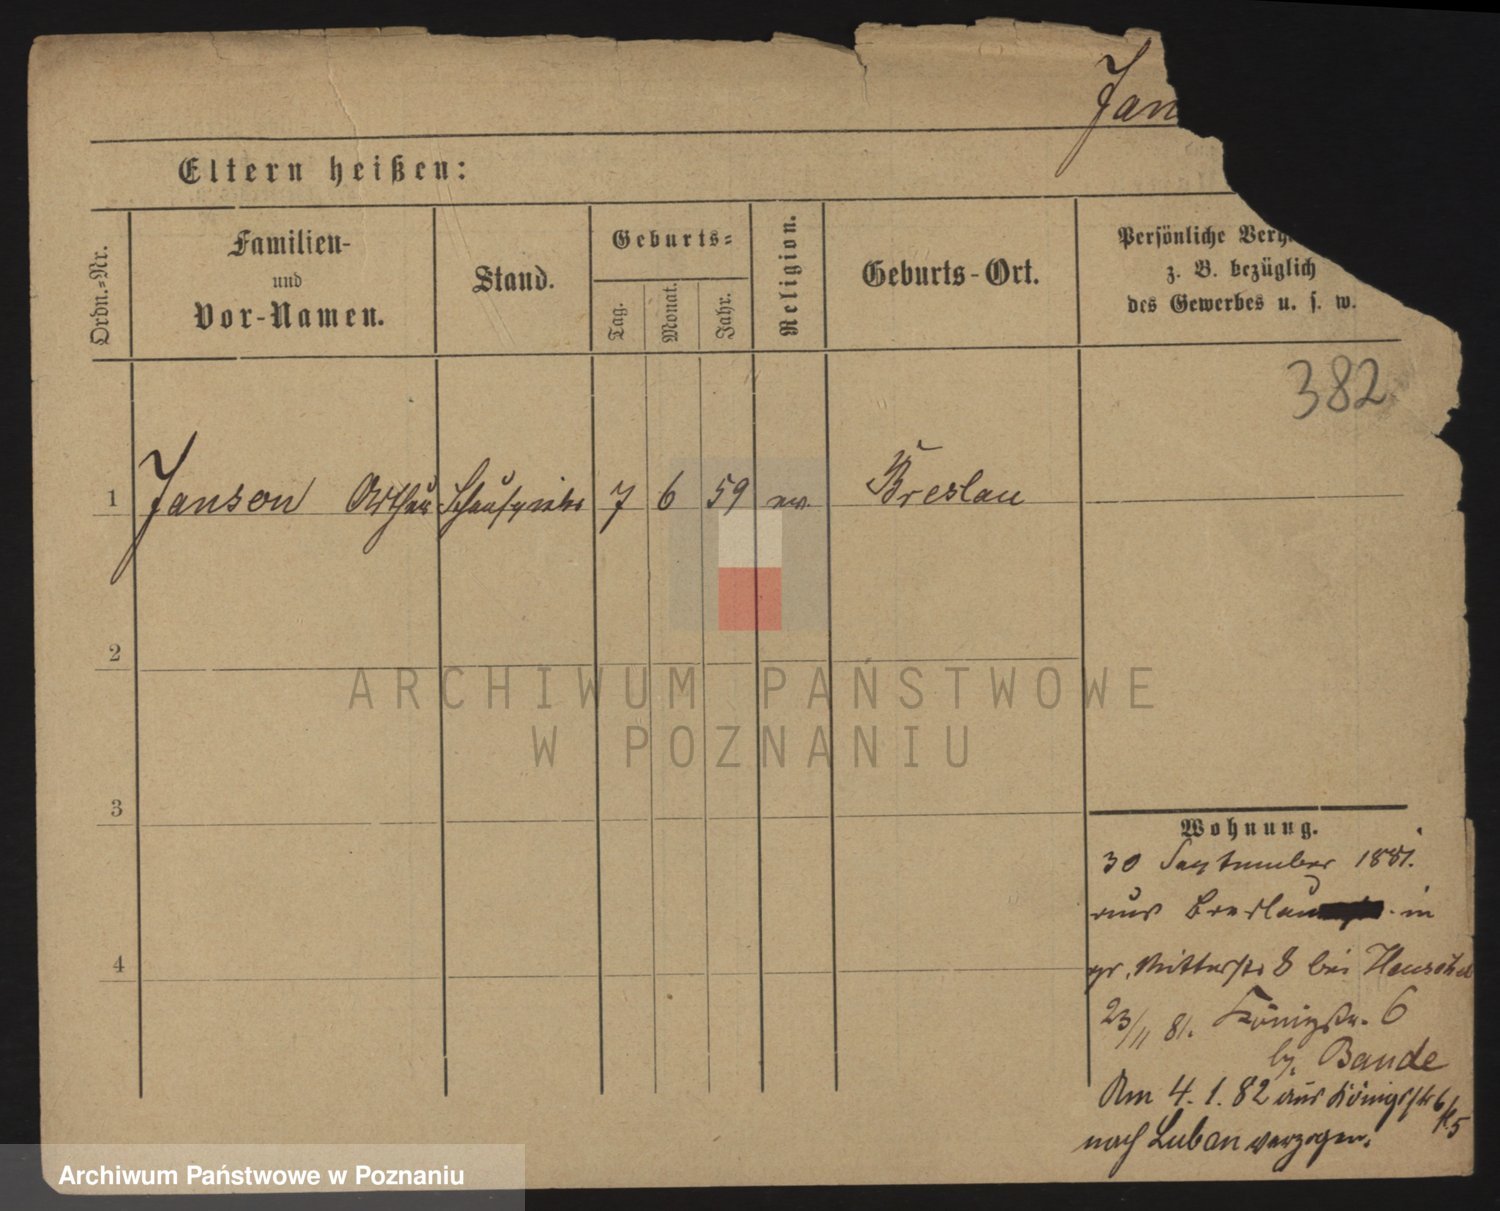 Jan
Eltern heißen:
Ordn.-Nr.
Familien-
und
Vor-Namen.
Stand.
Geburts-
Tag.
Monat.
Jahr.
Religion.
Geburts-Ort.
Persönliche Verh
z. B. bezüglich
des Gewerbes u. s. w.
382
1 Janson Arthur Schauspieler 7 6 59 ev. Breslau
2
3
4
Wohnung.
30 September 1881.
aus Breslau in
gr. Ritterstr 8 bei Henschel
23/11 81. Königstr. 6
by. Bande
Am 4.1.82 aus Königsstr 6/
nach Luban verzogen.
ARCHIWUM PAŃSTWOWE
W POZNANIU
Archiwum Państwowe w Poznaniu